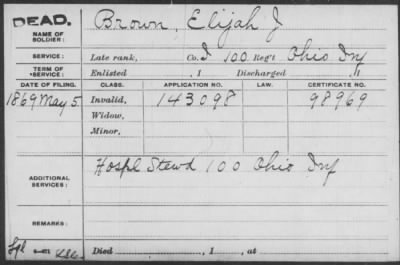 DEAD.
NAME OF SOLDIER: Brown, Elijah J
SERVICE: Late rank, Co. I 100 Reg't Ohio Inf
TERM OF SERVICE: Enlisted , 1 Discharged , 1
DATE OF FILING. CLASS. APPLICATION NO. LAW. CERTIFICATE NO.
1869 May 5 Invalid, 143098 98969
Widow,
Minor,
ADDITIONAL SERVICES: Hospl Stewd 100 Ohio Inf
REMARKS:
Died , 1 , at